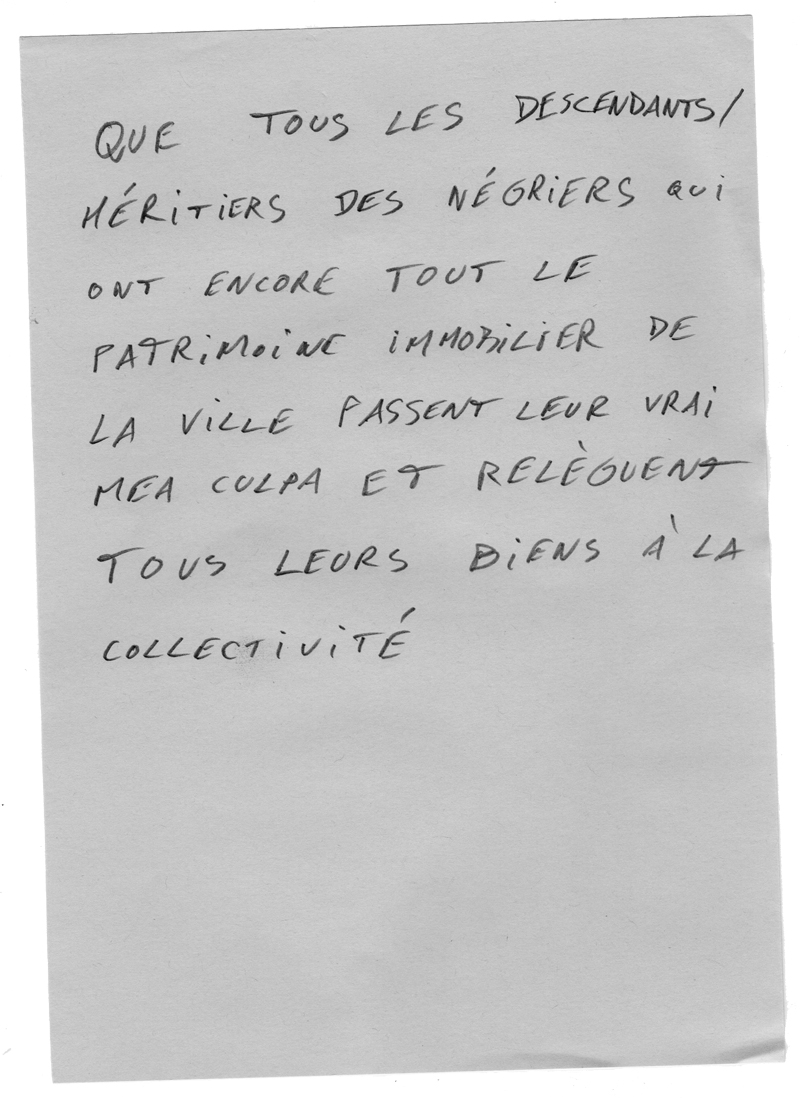 QUE TOUS LES DESCENDANTS/
HÉRITIERS DES NÉGRIERS QUI
ONT ENCORE TOUT LE
PATRIMOINE IMMOBILIER DE
LA VILLE PASSENT LEUR VRAI
MEA CULPA ET RELÈGUENT
TOUS LEURS BIENS À LA
COLLECTIVITÉ